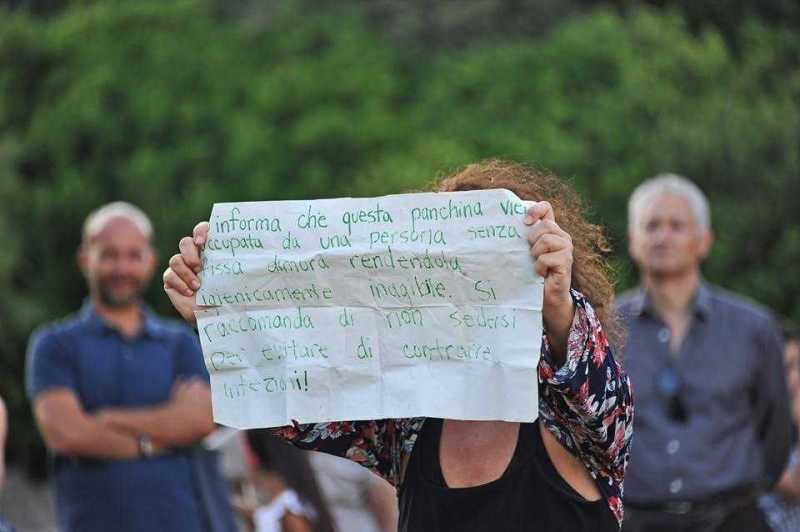 informa che questa panchina vie
ccupata da una persona senza
fissa dimora rendendola
igienicamente inagibile. Si
raccomanda di non sedersi
per evitare di contrarre
infezioni!